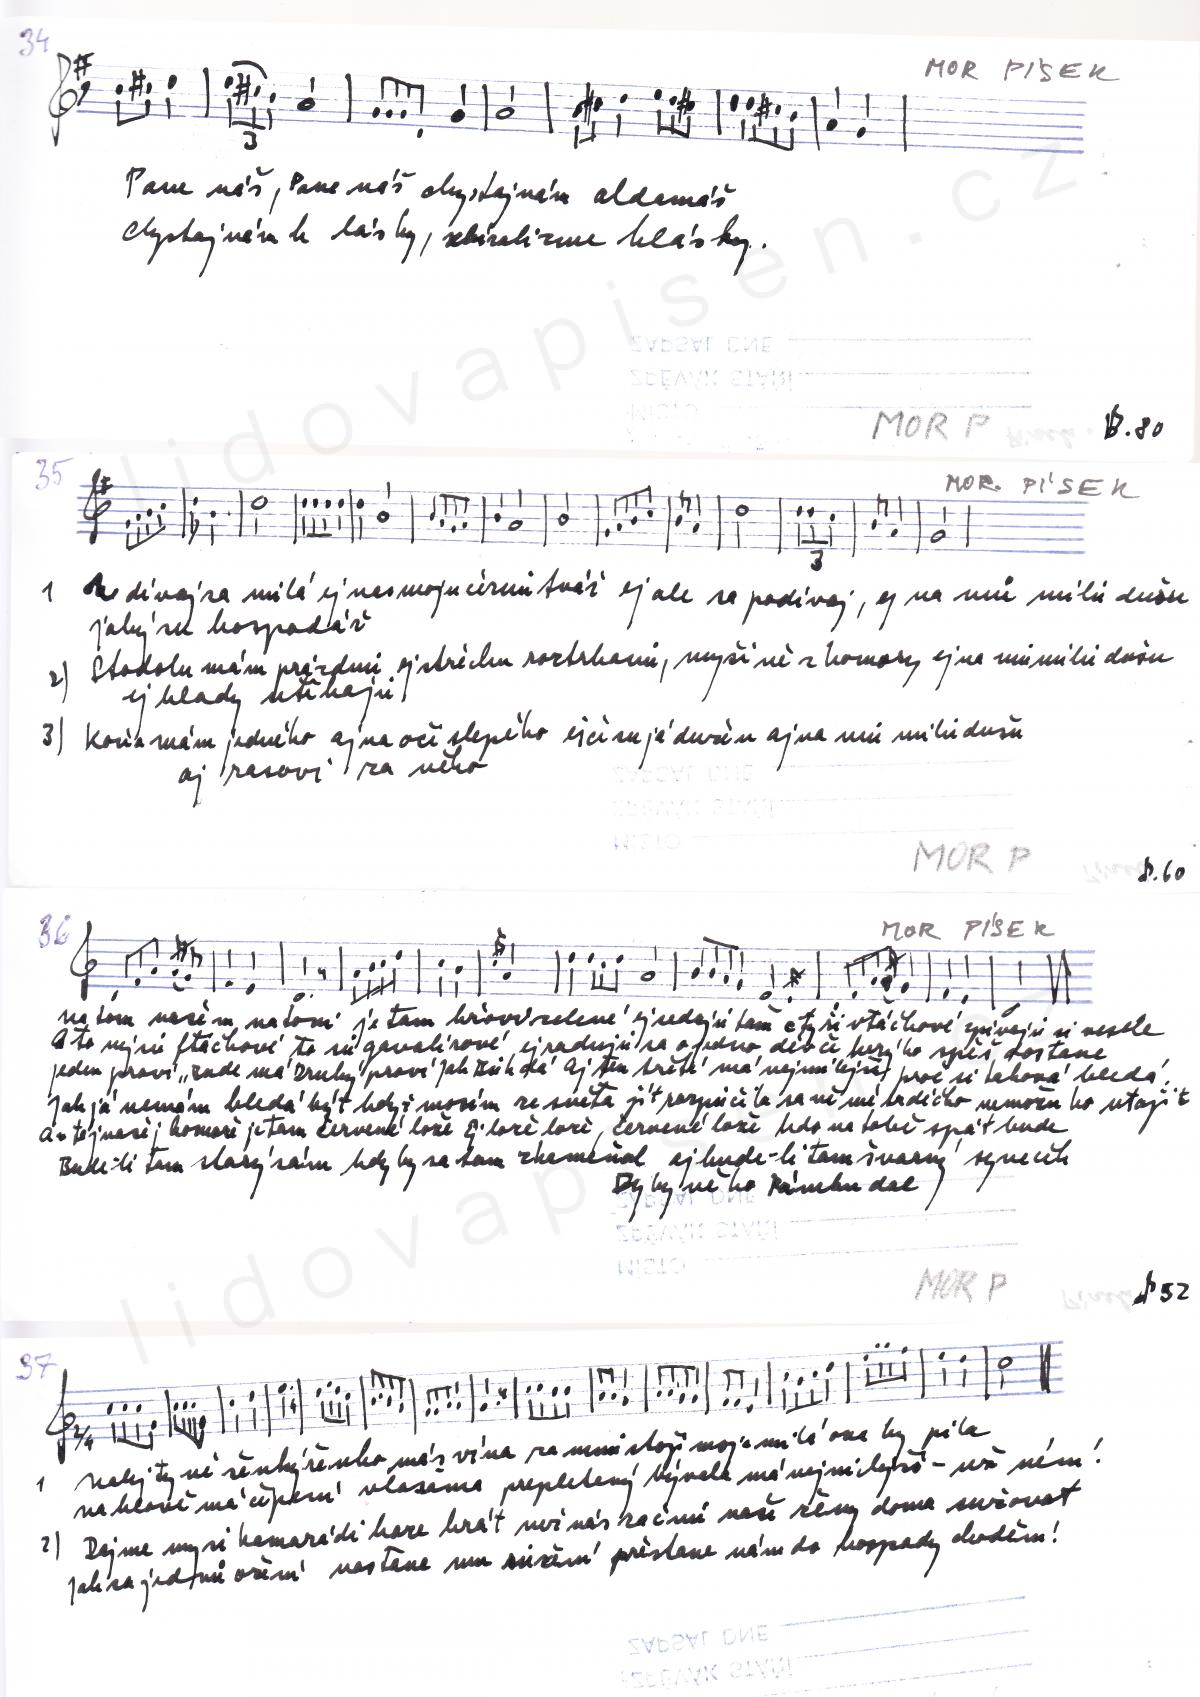 34
MOR PÍSEK
3
Pane náš, Pane náš chystaj nám aldamáš
chystaj nám k lásky, sbírali sme klásky.
ZAPSAL DNE
ZPĚVÁK STÁŘÍ
MÍSTO
MOR P
♪.80
35
MOR. PÍSEK
3
1 dívaj sa milá ej na smoju černú tvář ej ale sa podívaj, ej na mú milú dušu
jaký su hospodář
2) Stodolu mám prázdnú ej střechu roztrhanú, myši ně z komory ej na mú milú dušu
ej hlady utíkajú
3) Koňa mám jedného aj na oči slepého ej aj na mú milú dušu
aj rasovi za něho
ZAPSAL DNE
ZPĚVÁK STÁŘÍ
MÍSTO
MOR P
♪.60
36
MOR PÍSEK
na tom našem na je tam křoví zelené ej sedajú tam čtyři vtáčkové zpívajú si vesele
A to nejsú ftáčkové to sú gavalírové ej radujú sa o jedno děvče kerý ho spěš dostane
jeden praví „bude má Druhý praví jak Bůh dá Aj ten třetí má nejmilejší proč si taková bledá
Jak já nemám bledá být když mosím ze světa jít sa ně mé srdéčko nemožu ho utajit
A v tej našej komoře je tam červené lože Ej lože lože, červené lože kdo na tobě spát bude
Bude-li tam starý sám kdyby sa tam zkameňal aj bude-li tam švarný syneček
Dyby ně ho Pámbu dal
ZAPSAL DNE
ZPĚVÁK STÁŘÍ
MÍSTO
MOR P
♪ 52
37
2/4
1 nalej ty ně šenkýřenko más vína za mnú stojí moja milá ona by pila
na hlavě má čepení vlasama prepletený bývala má nejmilejší - už ném!
2) Dajme my si kamarádi kaře hrát než nás začnú naše ženy doma sužovat
jak sa jednú ožení nastane mu súžení přestane nám do hospody choděni!
ZAPSAL DNE
ZPĚVÁK STÁŘÍ
lidovapisen.cz